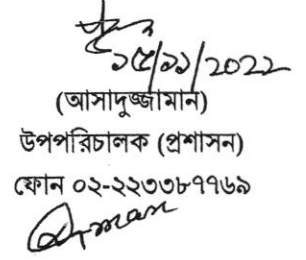 ১৫/১১/2022
(আসাদুজ্জামান)
উপপরিচালক (প্রশাসন)
ফোন ০২-২২৩৩৮৭৭৬৯